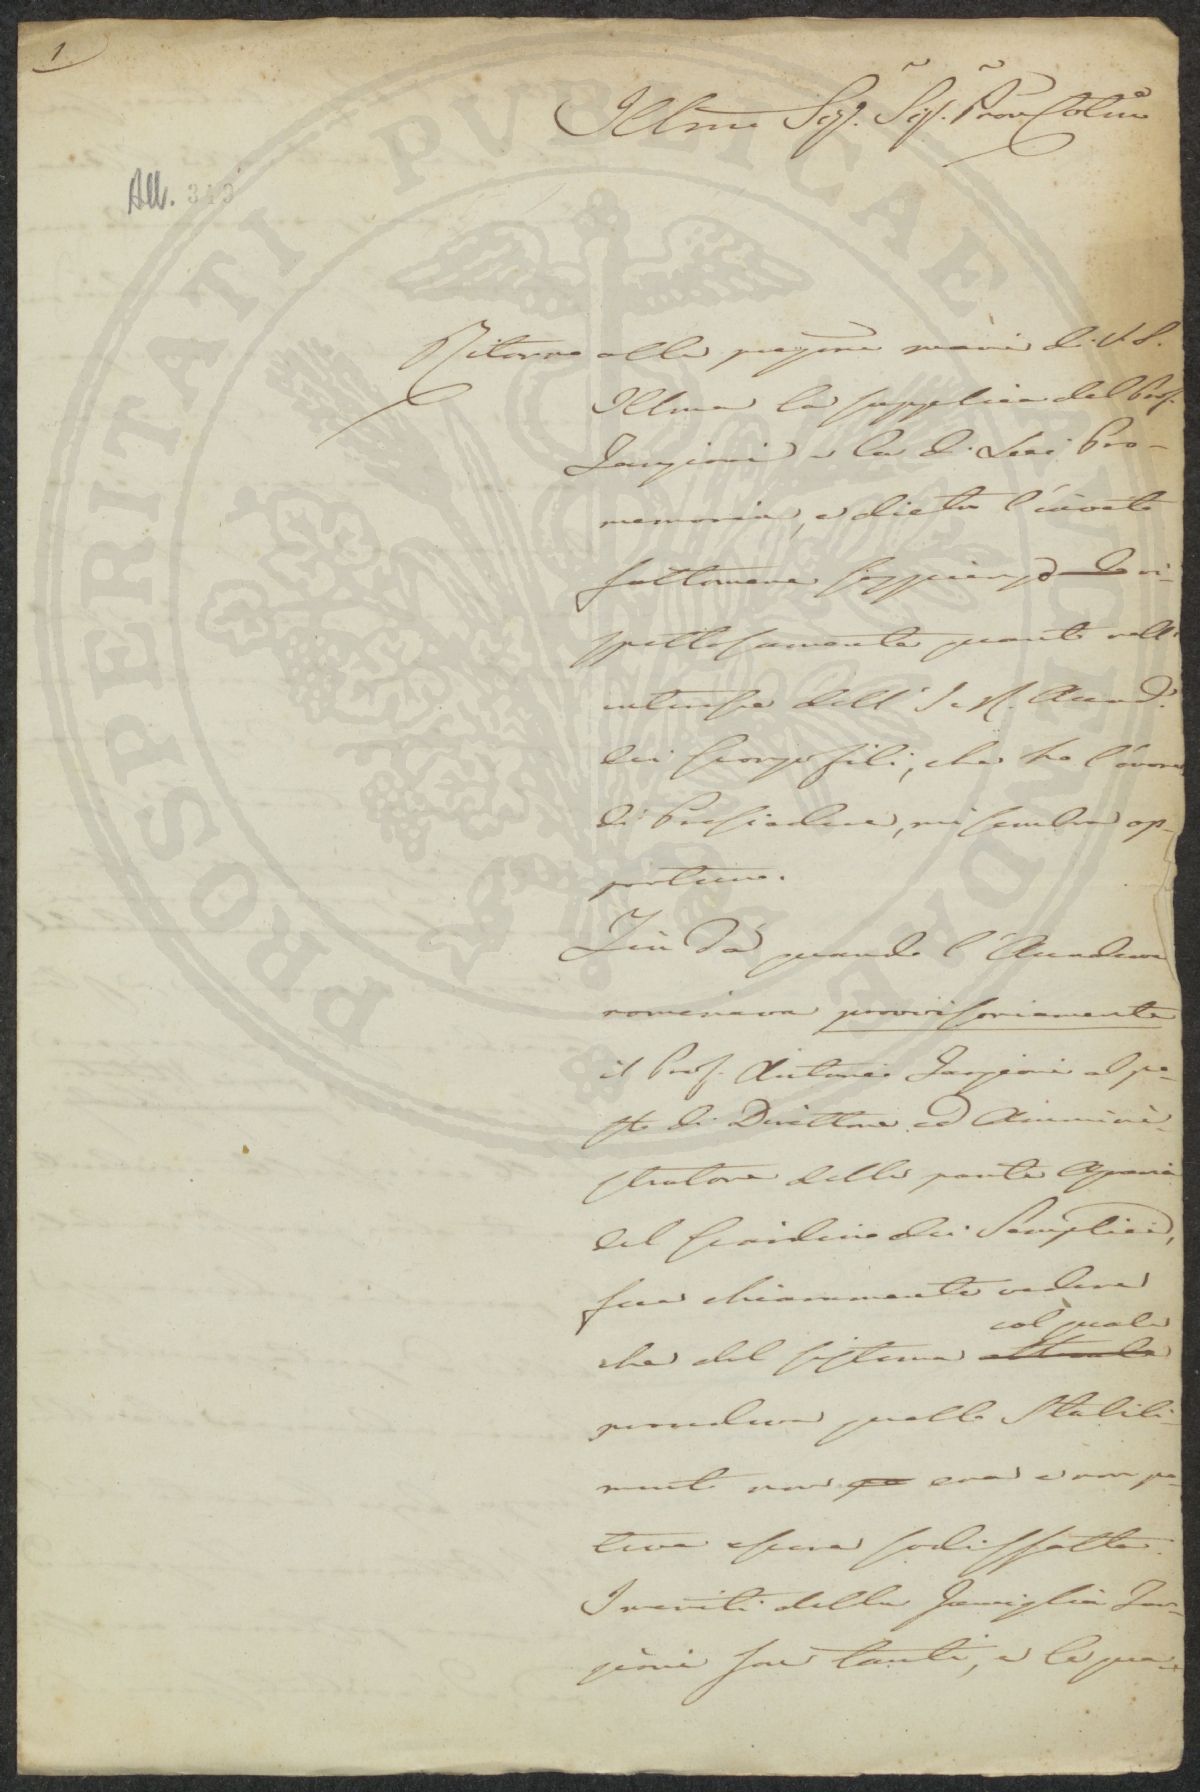 1
Illmo Sig. Sig. Pron Colmo
All. 343
Ritorno alle pregme mani di V. S.
Illma la supplica del Prof.
Targioni e la di Lei Pro-
memoria, e dietro l'invito
fattomene soggiungo ri-
spettosamente quanto nell'
interesse dell' I. e R. Accad.
dei Georgofili, che ho l'onore
di Presiedere, mi sembra op-
portuno.
Fin da quando l'Accademia
nominava provvisoriamente
il Prof. Antonio Targioni al po-
sto di Direttore ed Ammini-
stratore della parte Agraria
del Giardino dei Semplici,
fece chiaramente vedere
col quale
che del sistema attuale
procedeva quello Stabili-
mento non era e non po-
teva essere sodisfatta.
I meriti della Famiglia Tar-
gioni son tanti, e le qua-
PROSPERITATI PVBLICAE AVGENDAE